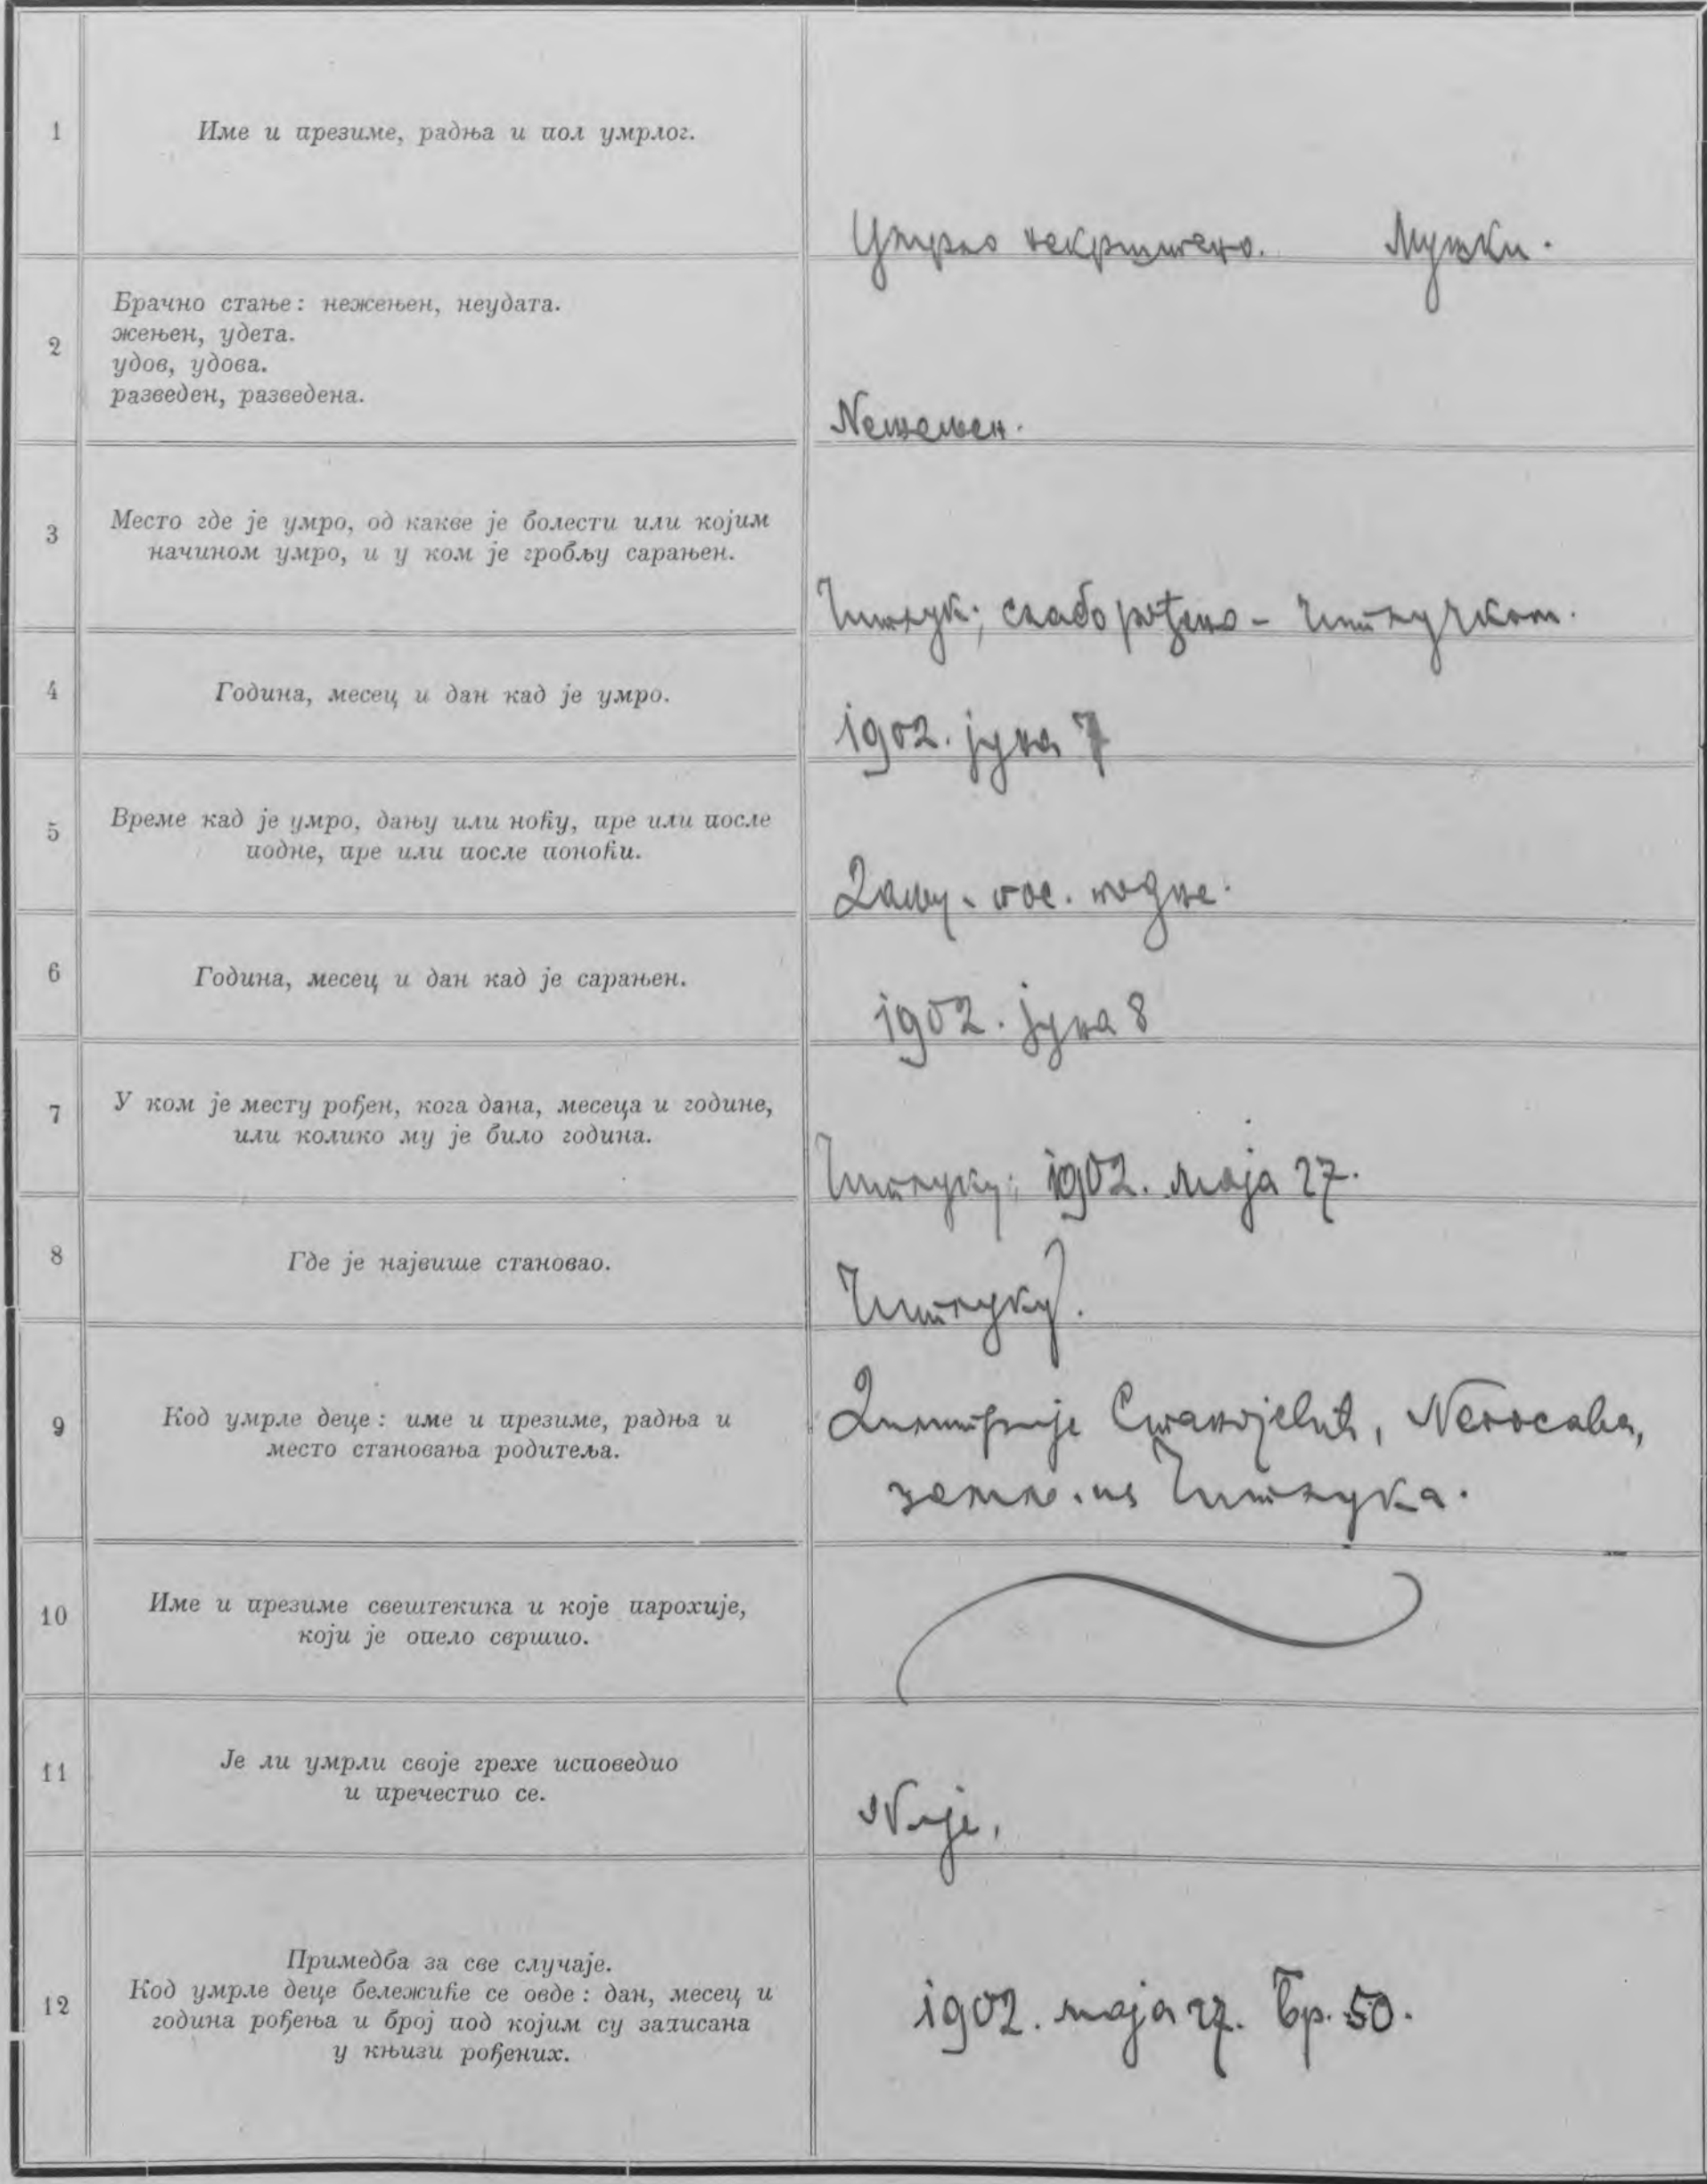 1
Име и презиме, радња и пол умрлог.
Умрло некрштено. Мушки.
2
Брачно стање: нежењен, неудата.
жењен, удета.
удов, удова.
разведен, разведена.
Нежењен.
3
Место где је умро, од какве је болести или којим
начином умро, и у ком је гробљу сарањен.
Читлук; слабо рођено - читлучком.
4
Година, месец и дан кад је умро.
1902. јуна 7
5
Време кад је умро, дању или ноћу, пре или после
подне, пре или после поноћи.
Дању. пос. подне.
6
Година, месец и дан кад је сарањен.
1902. јуна 8
7
У ком је месту рођен, кога дана, месеца и године,
или колико му је било година.
Читлуку; 1902. маја 27.
8
Где је највише становао.
Читлуку.
9
Код умрле деце: име и презиме, радња и
место становања родитеља.
Димитрије Станојевић, Непосава,
земљ. из Читлука.
10
Име и презиме свештекика и које парохије,
који је опело свршио.
11
Је ли умрли своје грехе исповедио
и пречестио се.
Није,
12
Примедба за све случаје.
Код умрле деце бележиће се овде: дан, месец и
година рођења и број под којим су записана
у књизи рођених.
1902. маја 27. Бр. 50.